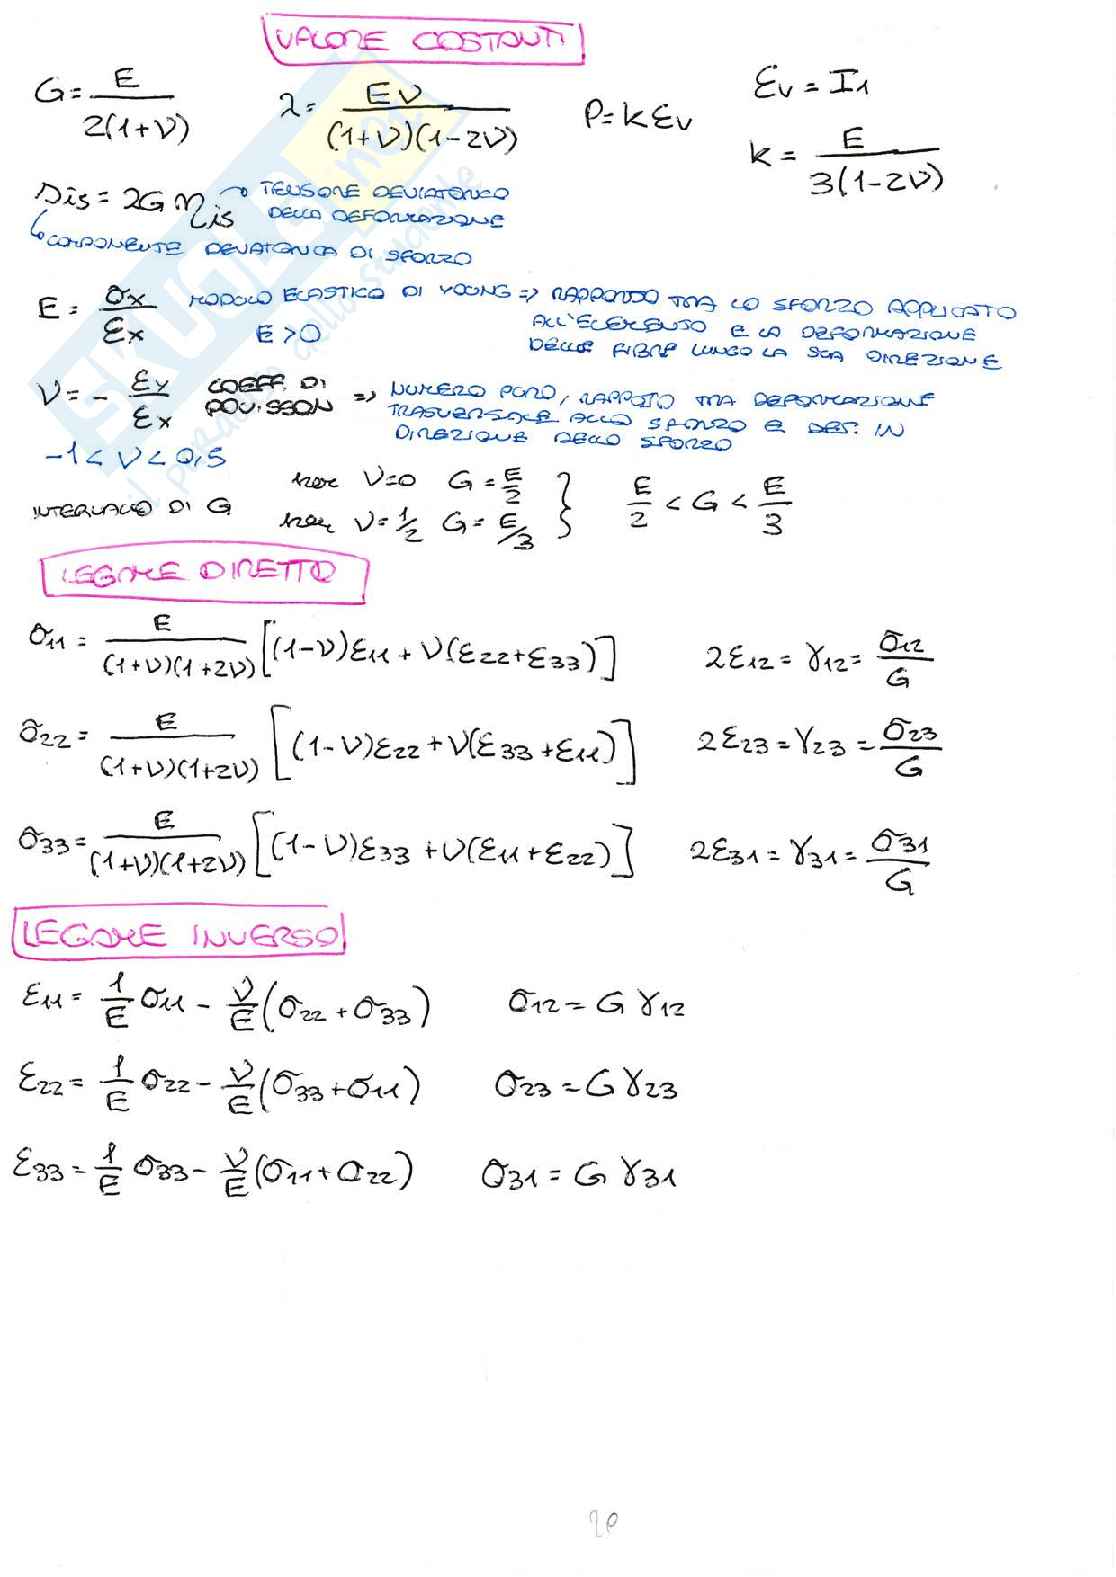 VALORE COSTANTI
G = E / 2(1+ν)    λ = Eν / (1+ν)(1-2ν)    P = k εv    εv = I1
k = E / 3(1-2ν)
Sis = 2G ηis → TENSORE DEVIATORICO
DELLA DEFORMAZIONE
↳ COMPONENTE DEVIATORICA DI SFORZO
E = σx / εx    MODULO ELASTICO DI YOUNG => RAPPORTO TRA LO SFORZO APPLICATO
E > 0    ALL'ELEMENTO E LA DEFORMAZIONE
DELLE FIBRE LUNGO LA SUA DIREZIONE
ν = - εy / εx    COEFF. DI POISSON => NUMERO PURO, RAPPORTO TRA DEFORMAZIONE
TRASVERSALE ALLO SFORZO E DEF. IN
DIREZIONE DELLO SFORZO
-1 < ν < 0,5
INTERVALLO DI G    ν=0    G = E/2 }    E/2 < G < E/3
ν = 1/2    G = E/3
LEGAME DIRETTO
σ11 = E / (1+ν)(1+2ν) [(1-ν)ε11 + ν(ε22+ε33)]    2ε12 = γ12 = σ12 / G
σ22 = E / (1+ν)(1+2ν) [(1-ν)ε22 + ν(ε33+ε11)]    2ε23 = γ23 = σ23 / G
σ33 = E / (1+ν)(1+2ν) [(1-ν)ε33 + ν(ε11+ε22)]    2ε31 = γ31 = σ31 / G
LEGAME INVERSO
ε11 = 1/E σ11 - ν/E (σ22 + σ33)    σ12 = G γ12
ε22 = 1/E σ22 - ν/E (σ33 + σ11)    σ23 = G γ23
ε33 = 1/E σ33 - ν/E (σ11 + σ22)    σ31 = G γ31